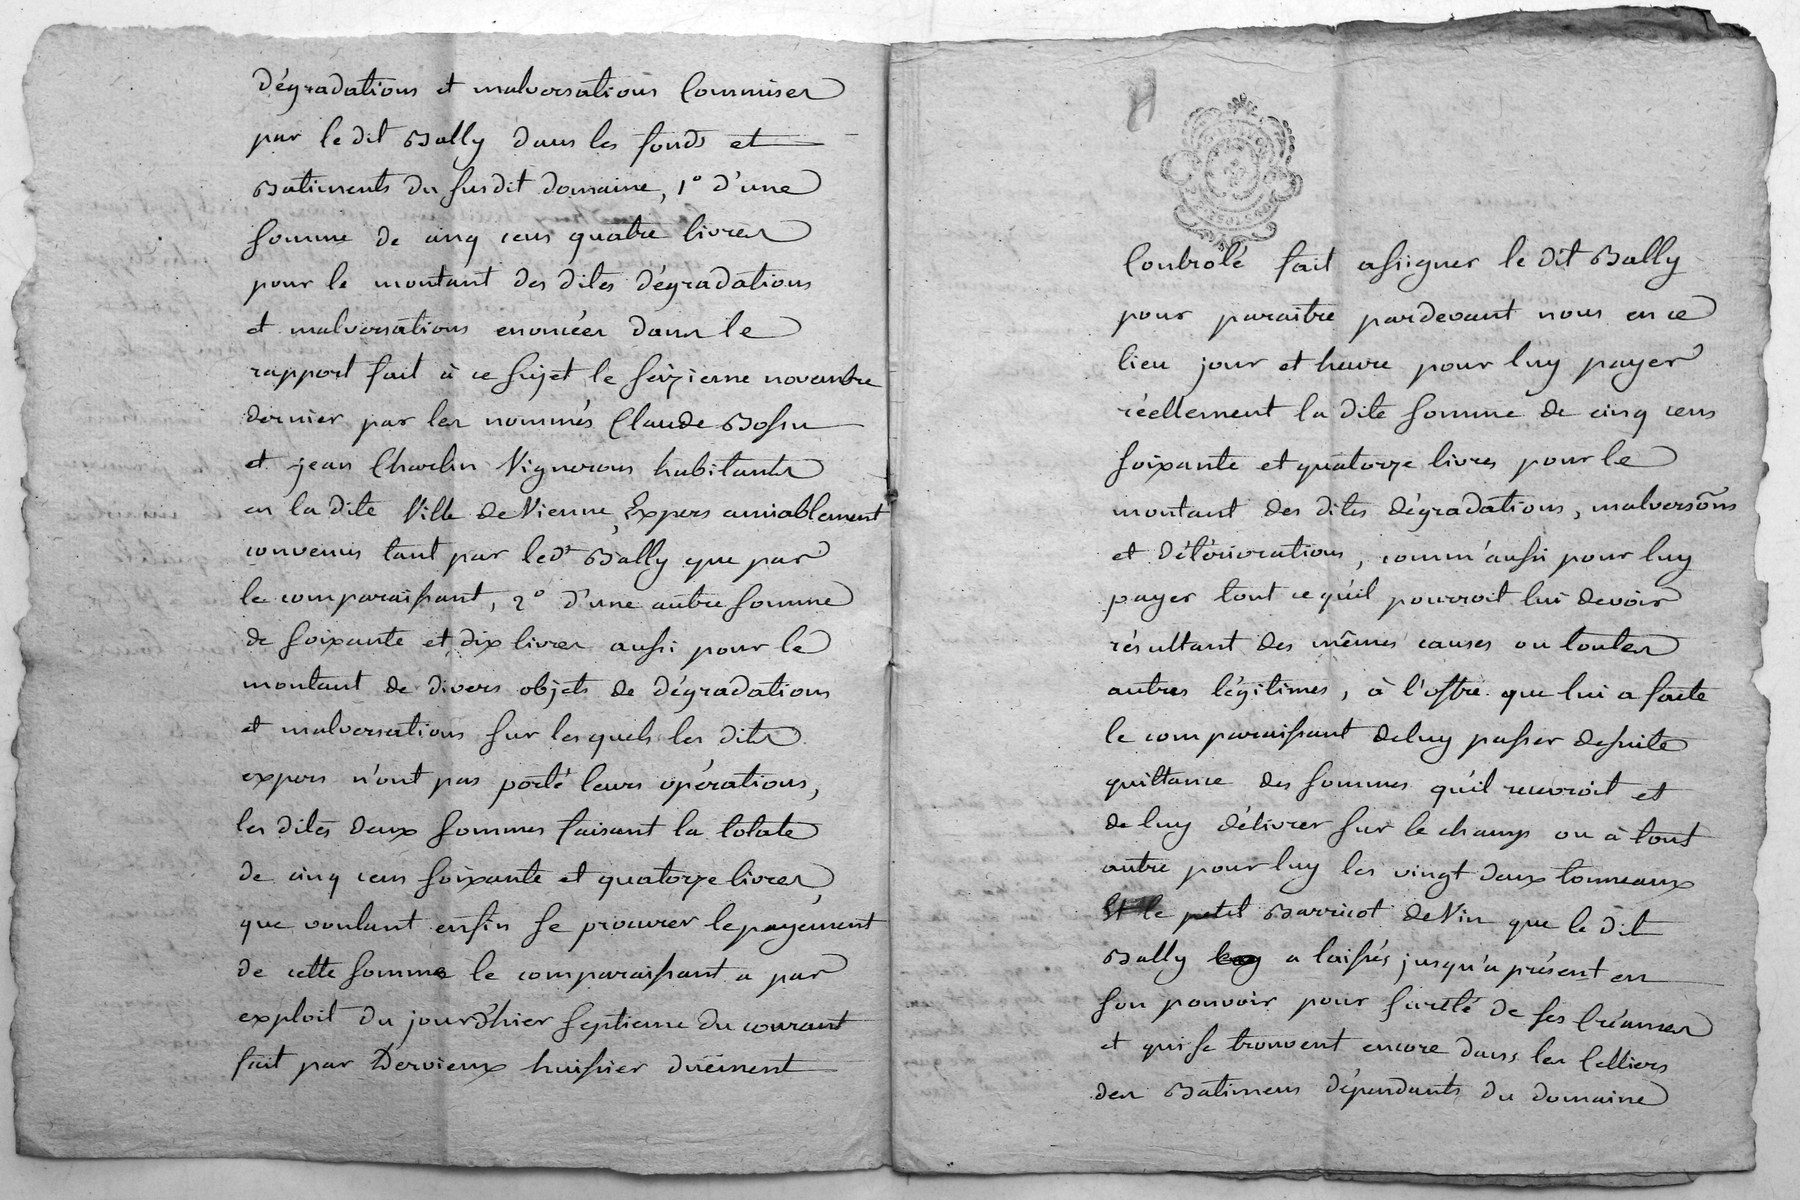 dégradations et malversations Commises
par le dit Bally dans les fonds et
Batiments du susdit domaine, 1° d'une
somme de cinq cens quatre livres
pour le montant des dites dégradations
et malversations enoncées dans le
rapport fait à ce sujet le seizieme novembre
dernier par les nommés Claude Bossu
et jean Charlin Vignerons habitants
en la dite Ville de Vienne, Expers amiablement
convenus tant par led.t Bally que par
le comparaissant, 2° d'une autre somme
de soixante et dix livres aussi pour le
montant de divers objets de dégradations
et malversations sur lesquels les dits
expers n'ont pas porté leurs opérations,
les dites deux sommes faisant la totale
de cinq cens soixante et quatorze livres,
que voulant enfin se procurer le payement
de cette somme le comparaissant a par
exploit du jour d'hier septieme du courant
fait par Dervieux huissier duëment
Controlé fait assigner le dit Bally
pour paraitre pardevant nous en ce
lieu jour et heure pour luy payer
réellement la dite somme de cinq cens
soixante et quatorze livres pour le
montant des dites dégradations, malversõns
et détériorations, comm'aussi pour luy
payer tout ce qu'il pourroit lui devoir
résultant des mêmes causes ou toutes
autres légitimes, à l'offre que lui a faite
le comparaissant de luy passer desuite
quittance des sommes qu'il recevroit et
de luy délivrer sur le champ ou à tout
autre pour luy les vingt deux tonneaux
Et le petit Barricot de Vin que le dit
Bally a laissés jusqu'a présent en
son pouvoir pour sureté de ses Créances
et qui se trouvent encore dans les Celliers
des Batimens dépendants du domaine